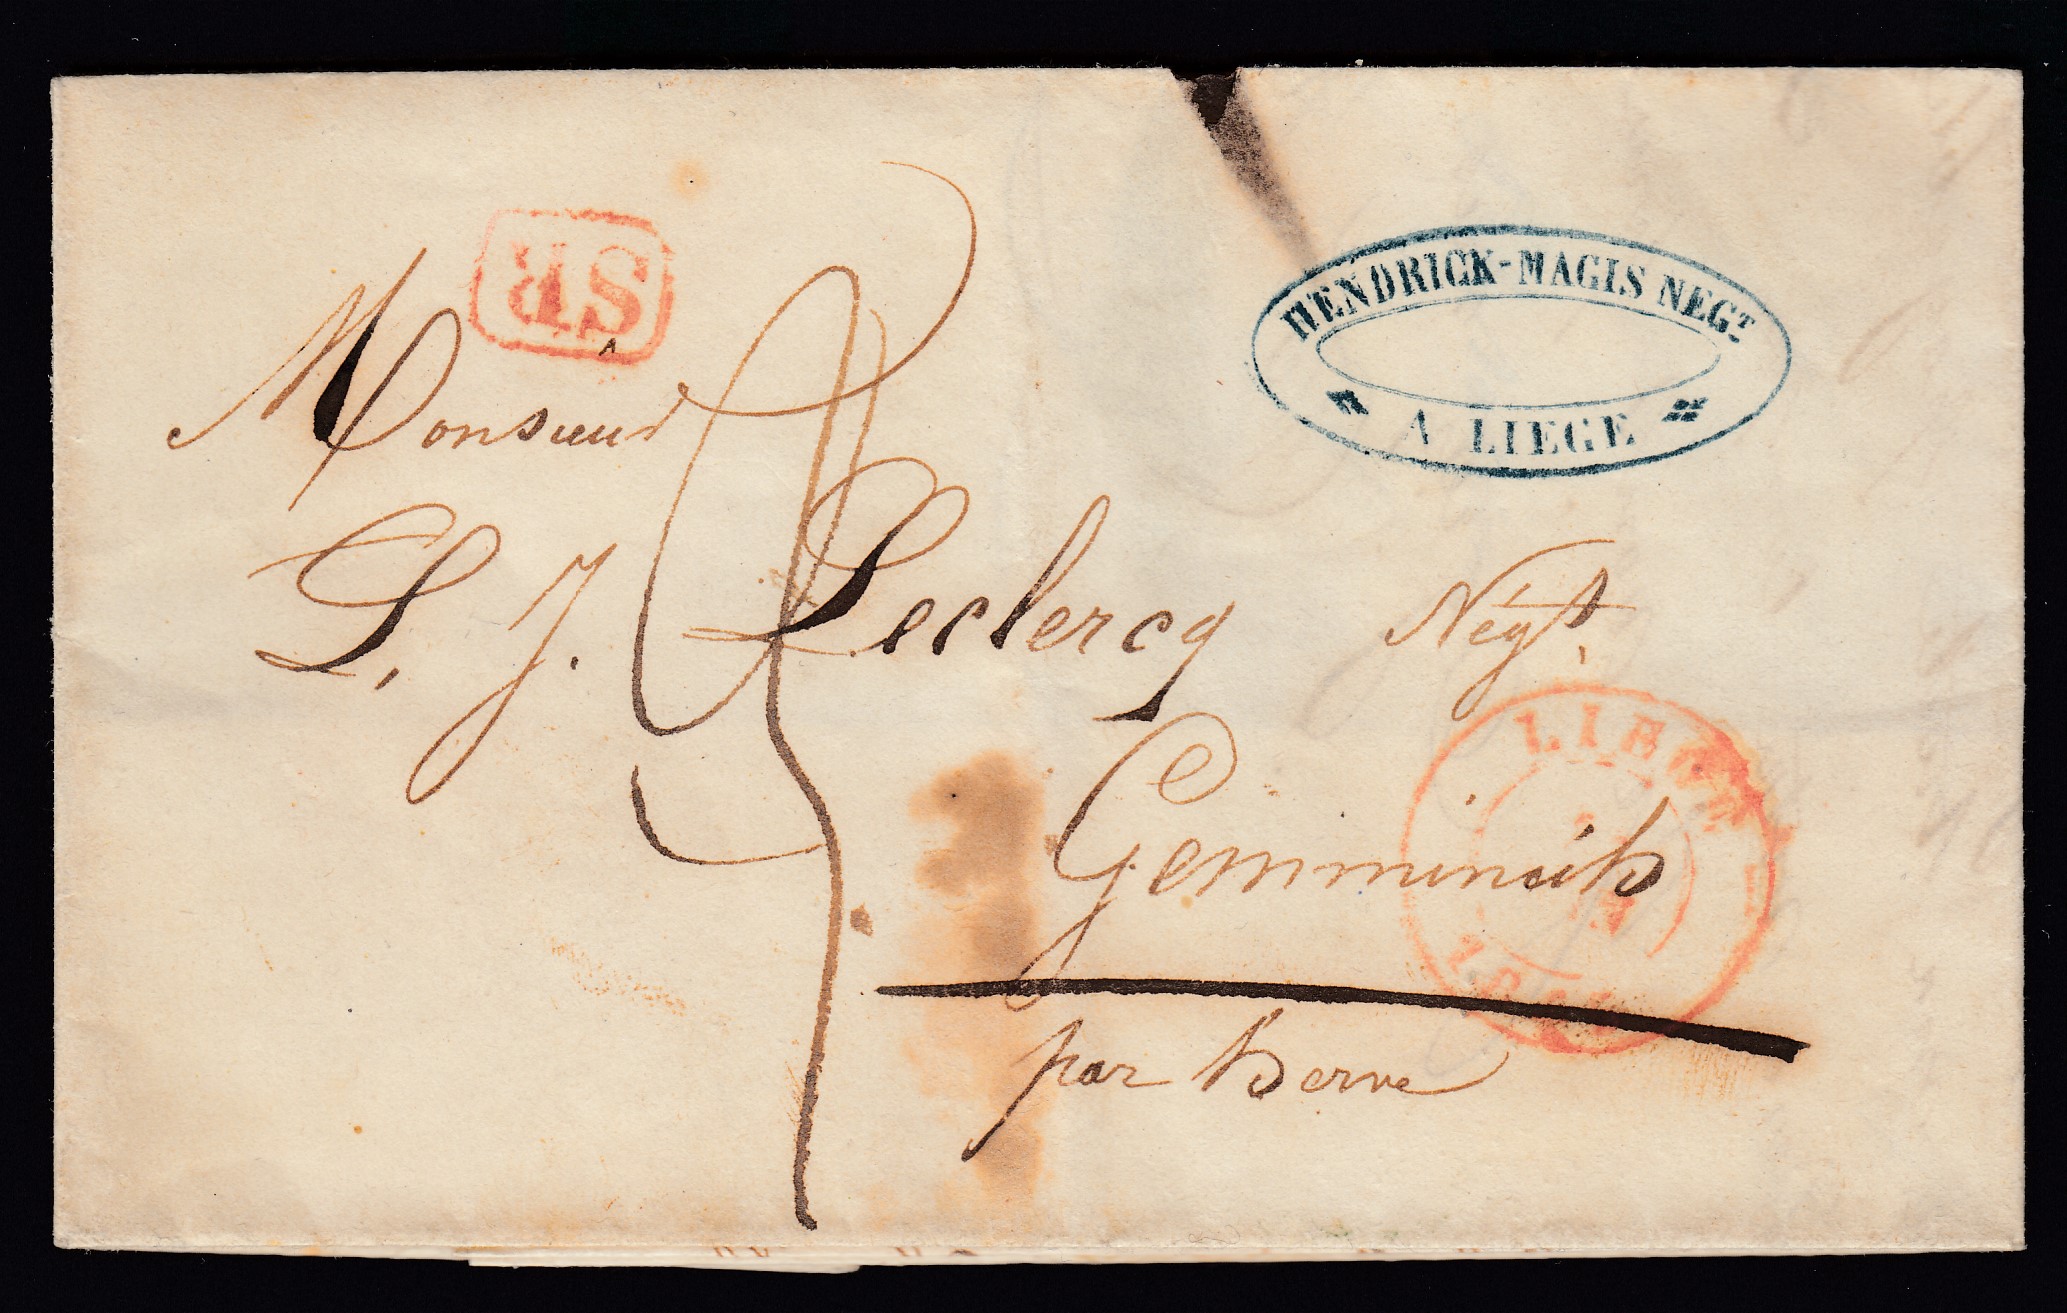 SR
HENDRICK-MAGIS NEGT.
A LIEGE
Monsieur
L. J. Leclercq Négt.
LIEGE
Gemmenich
par Herve